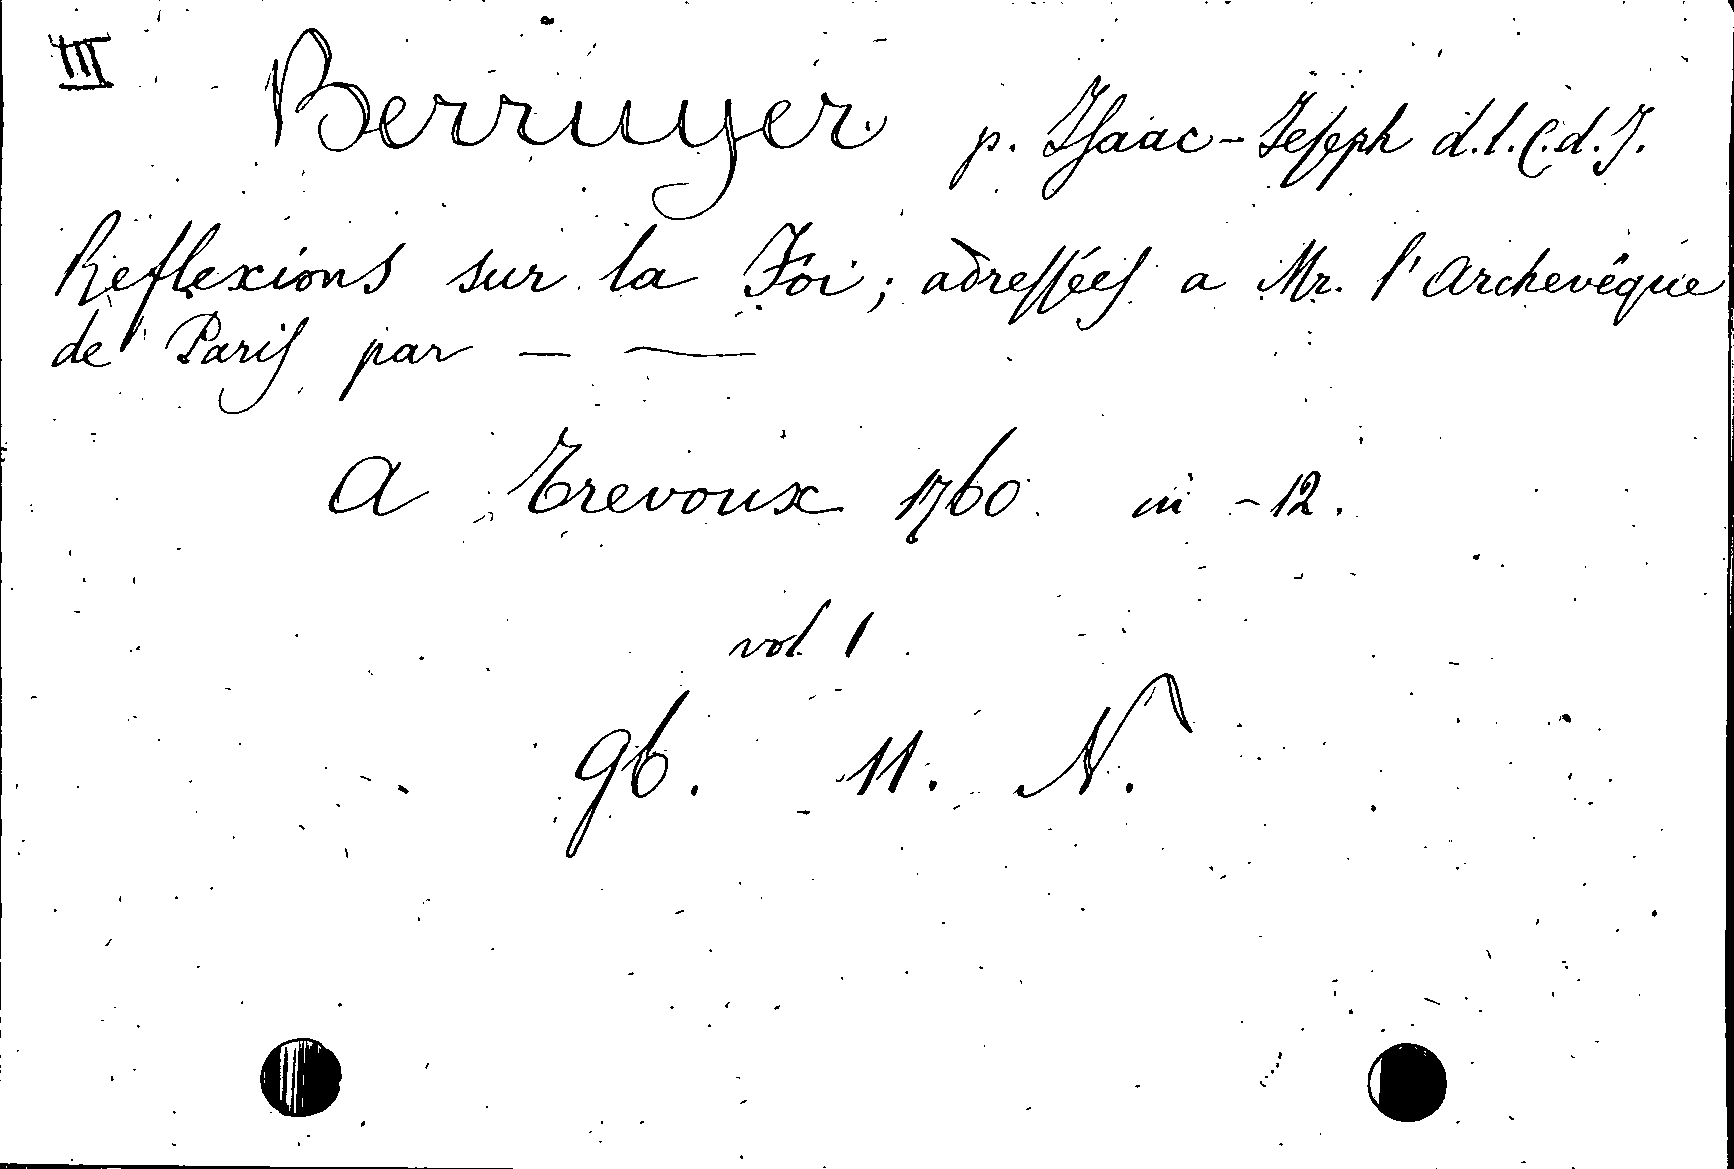 III Berruyer p. Isaac-Joseph d.l.C.d.J.
Reflexions sur la Foi; adressées a Mr. l'Archevêque
de Paris par — —
A Trevoux 1760 in-12.
vol. 1
96. 11. N.